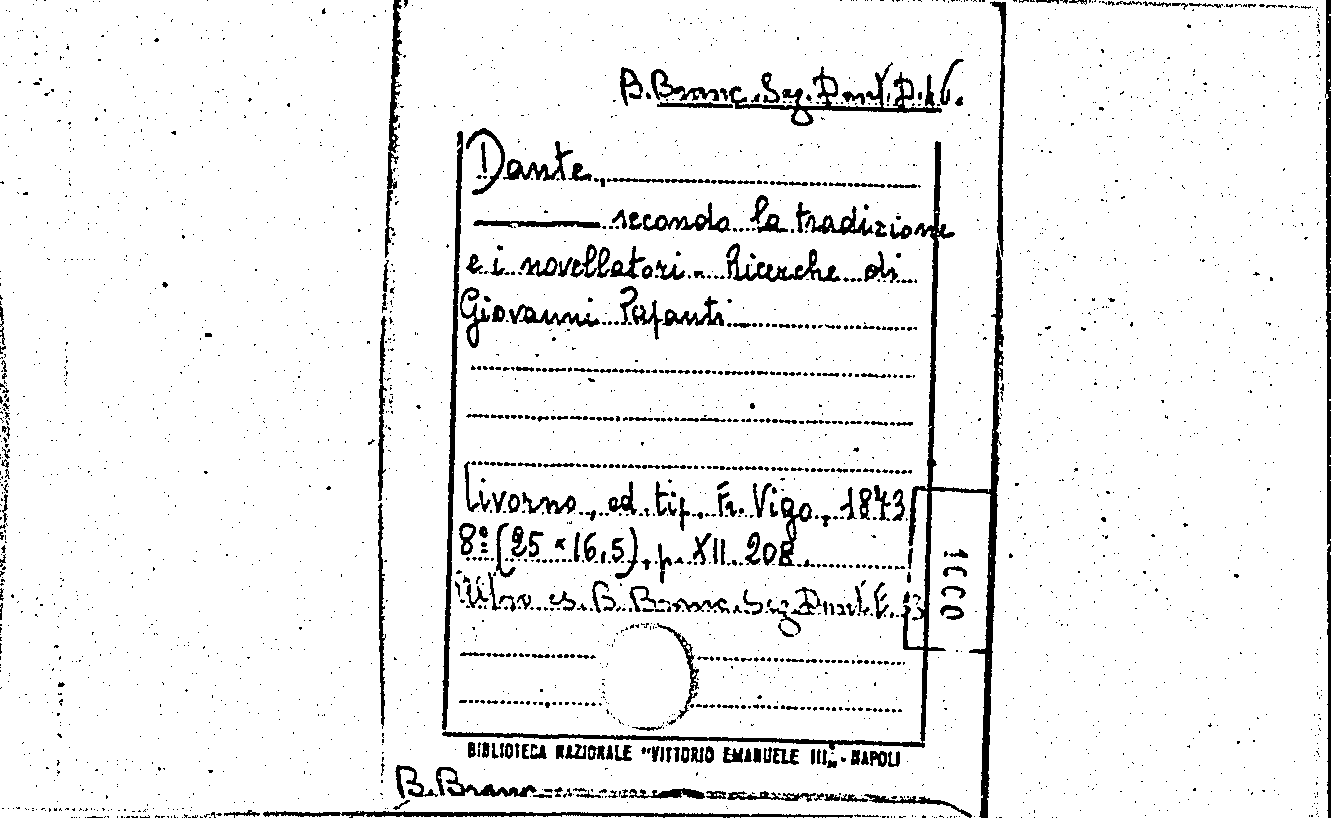 B. Branc. Sez. Dant. D. 46.
Dante,
secondo la tradizione
e i novellatori. Ricerche di
Giovanni Papanti
Livorno, ed. tip. Fr. Vigo, 1873
8º (25 × 16,5), p. XII. 208.
Altro es. B. Branc. Sez Dant. E.
1000
BIBLIOTECA NAZIONALE "VITTORIO EMANUELE III" - NAPOLI
B. Branc